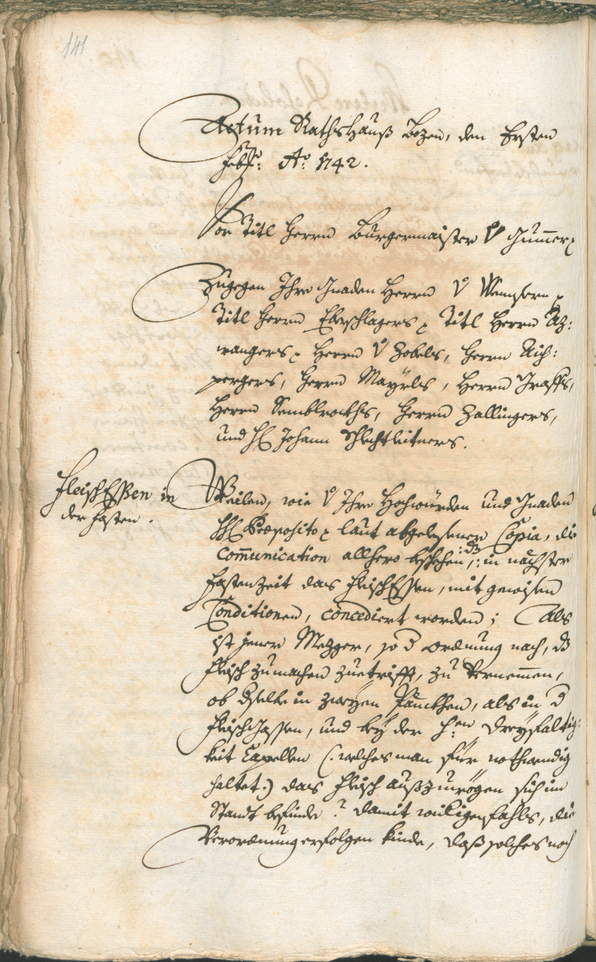 141
Actum Rathshauß Bozen, den Ersten
Febr: Aō: 1742.
Vor Titl Herrn Burgermaister v Gummer
Zugegen Ihro Gnaden Herrn v Menz
Titl Herrn Eberschlagers, Titl Herrn Az-
wangers, Herrn v Zobels, Herrn Aich-
pergers, Herrn Mayrls, Herrn Graffs,
Herrn Semblroths, Herrn Zallingers,
und H Johann Schlechtleitners.
Fleischessen in
der fasten.
Weilen, wie v Ihro Hochwürden und Gnaden
H Præposito laut abgelesener Copia, die
communication allhero beschehen, :dz: in nächster
fastenzeit das fleischessen, mit gewisen
Conditionen, concediert worden; Als
ist jener Metzger, so d ordnung nach, dz
fleisch zumachen zuetrifft, zu vernemmen,
ob dselbe in zweyen Pänckhen, als in d
fleischgassen, und bey der H: Dreyfaltig-
keit Capellen (: welches man für nothwendig
haltet:) das fleisch außzuwögen sich im
Standt befinde? damit widrigenfahls, die
Verordnung erfolgen könde, daß solches noch